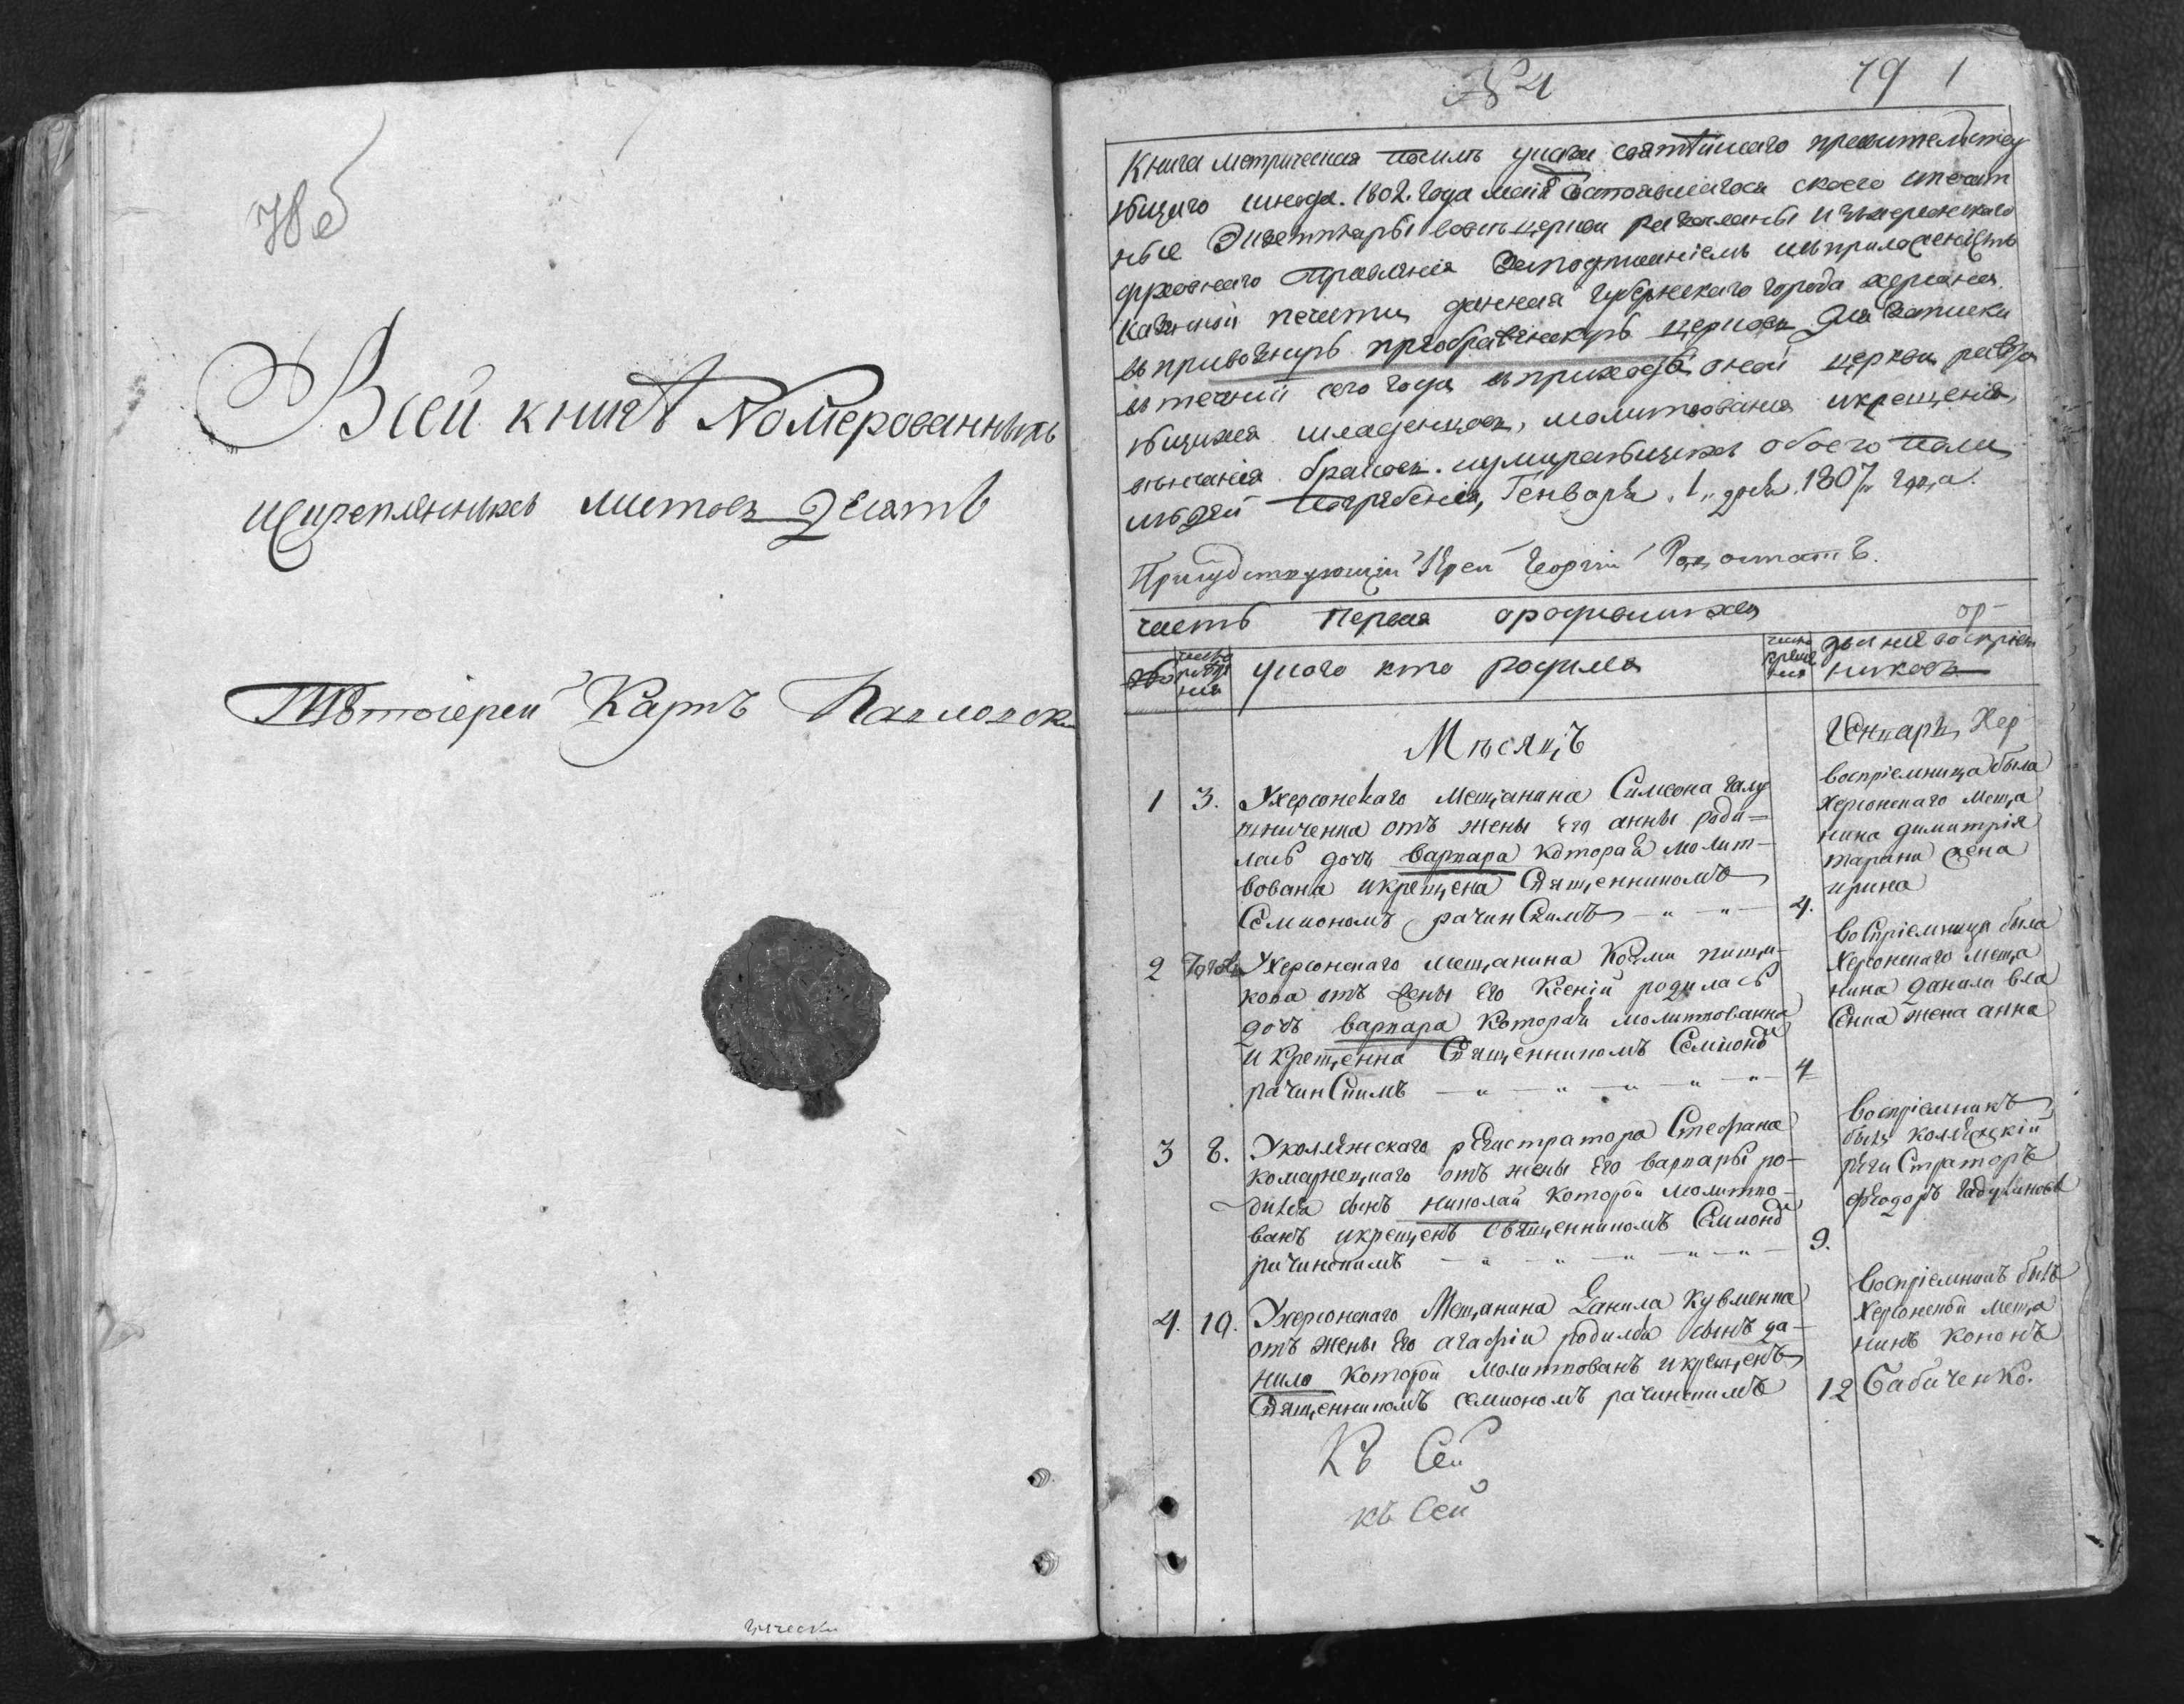 78 об
Всей книгѣ Номерованныхъ
ищирепленнихъ листовъ Десять
Протоіерей Карпъ Павловски
№ 4
79 1
Книга метрическая посилъ указа святѣйшаго правительству
ющаго сѵнода. 1802. года маія состоявшагося
ховнаго Правленія заподписаніемъ иприложеніемъ
казенной печати данная губернскаго города херсона
церкви для записки
втечніи сего года вприходѣ оной церкви раждаю
ющихся младенцовъ, молитвованія икрещенія,
вѣнчанія браковъ. иумирающихъ обоего пола
людей погребенія, Генваря „1„ дня. 1807„ года.
Присудствующій Ерей Георгій
часть Первая ородившихся
число рожде нія
укого кто родился
число креще нія
званіе воспріем никовъ
Мѣсяцъ
Генварь
1 3. Ухерсонскаго Мещанина Симеона галу
шниченка отъ жены Его анны роди=
лась дочъ варвара которая молит-
вована икрещена Священникомъ
Семиономъ рачинСкимъ 4.
воспріемница была
херсонскаго меща
нина димитрія
тарана жена
ирина
2 Ухерсонскаго мещанина Козми пищи-
кова отъ жены Его Ксеніи родилась
дочъ варвара Которая молитвованна
и Крещенна Священникомъ Семионо
рачинСкимъ 4
воСпріемница была
херсонскаго меща
нина данила вла
Сенка жена анна
3 8. Уколлежскаго рЕгистратора Стефана
комарецкаго отъ жены Его варвары ро-
дился сынъ николай которой молитво-
ванъ икрещенъ священникомъ Семионо
рачинскимъ 9.
воспріемникъ
былъ коллежскій
региСтраторъ
феодоръ
4. 10. Ухерсонскаго Мещанина Данила Кувменка
отъ жены Его агафіи родился сынъ да-
нило которой молитвованъ икрещенъ
Священникомъ семиономъ рачинскимъ 12
воспріемникъ былъ
херсонской меща
нинъ кононъ
Бабиченко.
Къ Сей
къ Сей